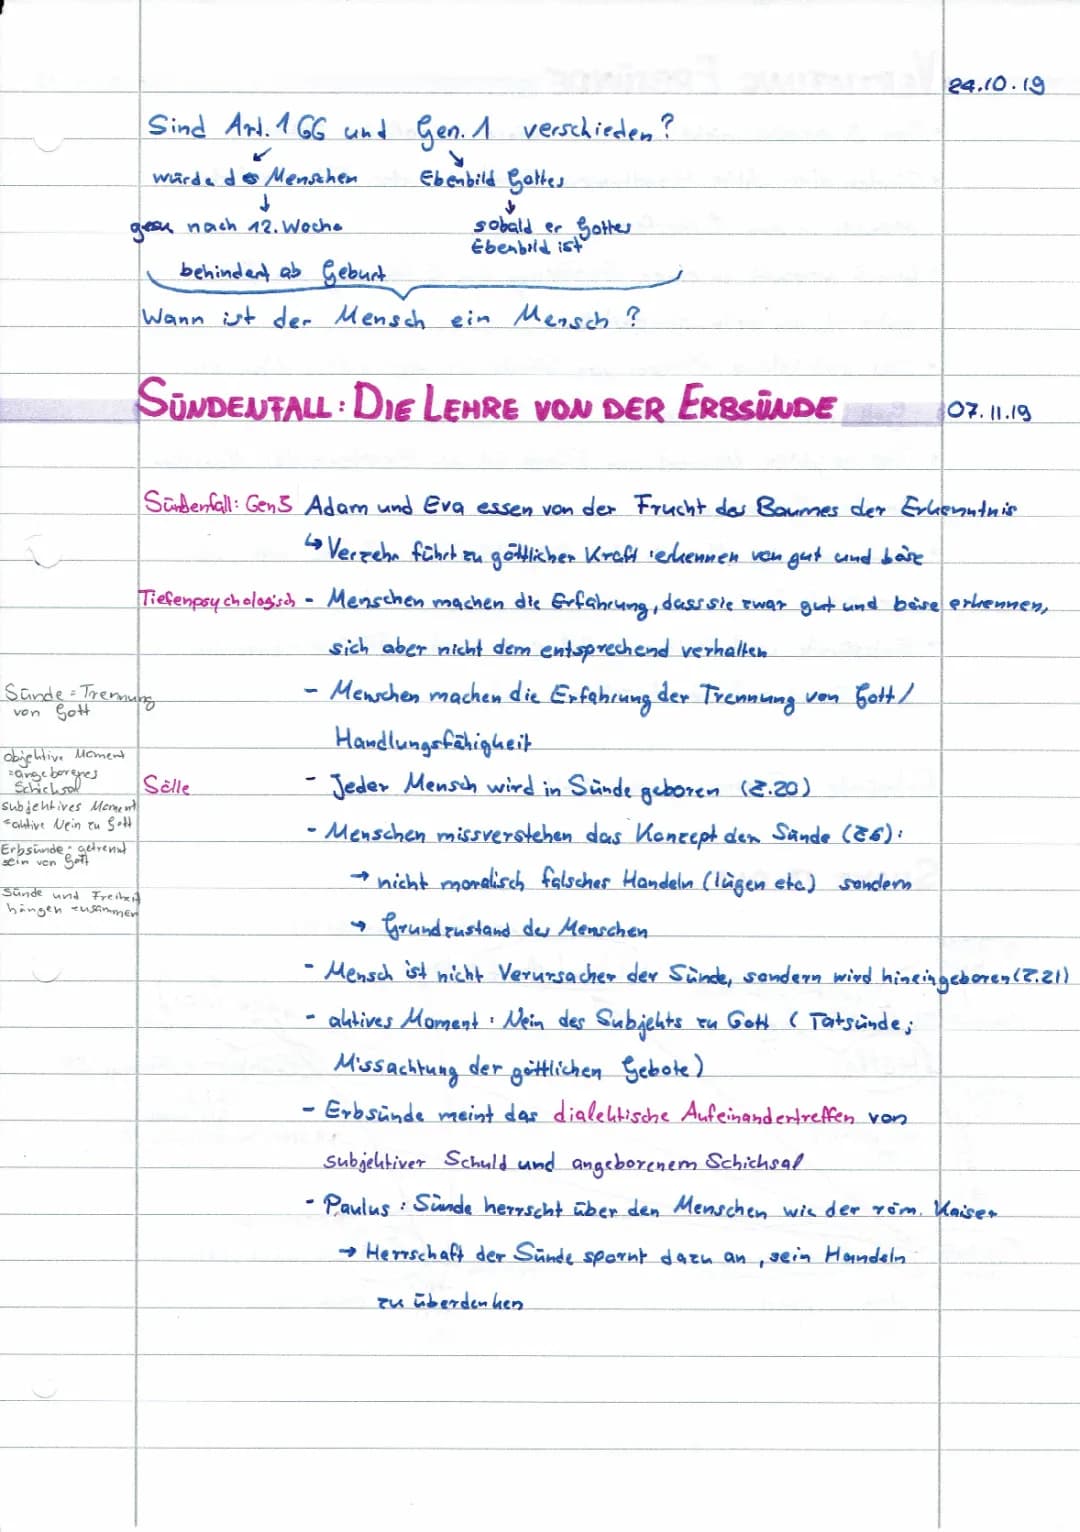 24.10.19
Sind Art. 1 GG und Gen. 1 verschieden?
würde des Menschen Ebenbild Gottes
nach 12. Woche sobald er Gottes
Ebenbild ist
behindert ab Geburt
Wann ist der Mensch ein Mensch?
SÜNDENFALL: DIE LEHRE VON DER ERBSÜNDE 07.11.19
Sündenfall: Gen3 Adam und Eva essen von der Frucht des Baumes der Erkenntnis
↳ Verzehr führt zu göttlicher Kraft: erkennen von gut und böse
Tiefenpsychologisch - Menschen machen die Erfahrung, dass sie zwar gut und böse erkennen,
sich aber nicht dem entsprechend verhalten
- Menschen machen die Erfahrung der Trennung von Gott/
Handlungsfähigkeit
Sünde = Trennung
von Gott
objektive Moment
= angeborenes
Schicksal
subjektives Moment
= aktive Nein zu Gott
Erbsünde: getrennt
sein von Gott
Sünde und Freiheit
hängen zusammen
Sölle - Jeder Mensch wird in Sünde geboren (Z.20)
- Menschen missverstehen das Konzept der Sünde (Z6):
→ nicht moralisch falsches Handeln (lügen etc.) sondern
→ Grundzustand des Menschen
- Mensch ist nicht Verursacher der Sünde, sondern wird hineingeboren (Z.21)
- aktives Moment: Nein des Subjekts zu Gott (Tatsünde;
Missachtung der göttlichen Gebote)
- Erbsünde meint das dialektische Aufeinandertreffen von
subjektiver Schuld und angeborenem Schicksal
- Paulus: Sünde herrscht über den Menschen wie der röm. Kaiser
→ Herrschaft der Sünde spornt dazu an, sein Handeln
zu überdenken